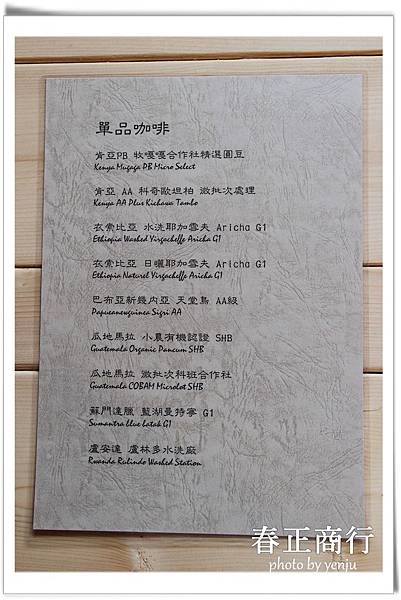 單品咖啡
肯亞PB 牧嘎嘎合作社精選圓豆
Kenya Mugaga PB Micro Select
肯亞 AA 科奇歐坦柏 微批次處理
Kenya AA Plus Kichawa Tambo
衣索比亞 水洗耶加雪夫 Aricha G1
Ethiopia Washed Yirgacheffe Aricha G1
衣索比亞 日曬耶加雪夫 Aricha G1
Ethiopia Naturel Yirgacheffe Aricha G1
巴布亞新幾內亞 天堂鳥 AA級
Papueaneuguinea Sigri AA
瓜地馬拉 小農有機認證 SHB
Guatemala Organic Pancum SHB
瓜地馬拉 微批次科班合作社
Guatemala COBAM Microlot SHB
蘇門達臘 藍湖曼特寧 G1
Sumantra blue batak G1
盧安達 盧林多水洗廠
Rwanda Rulindo Washed Station
春正商行
photo by yenju